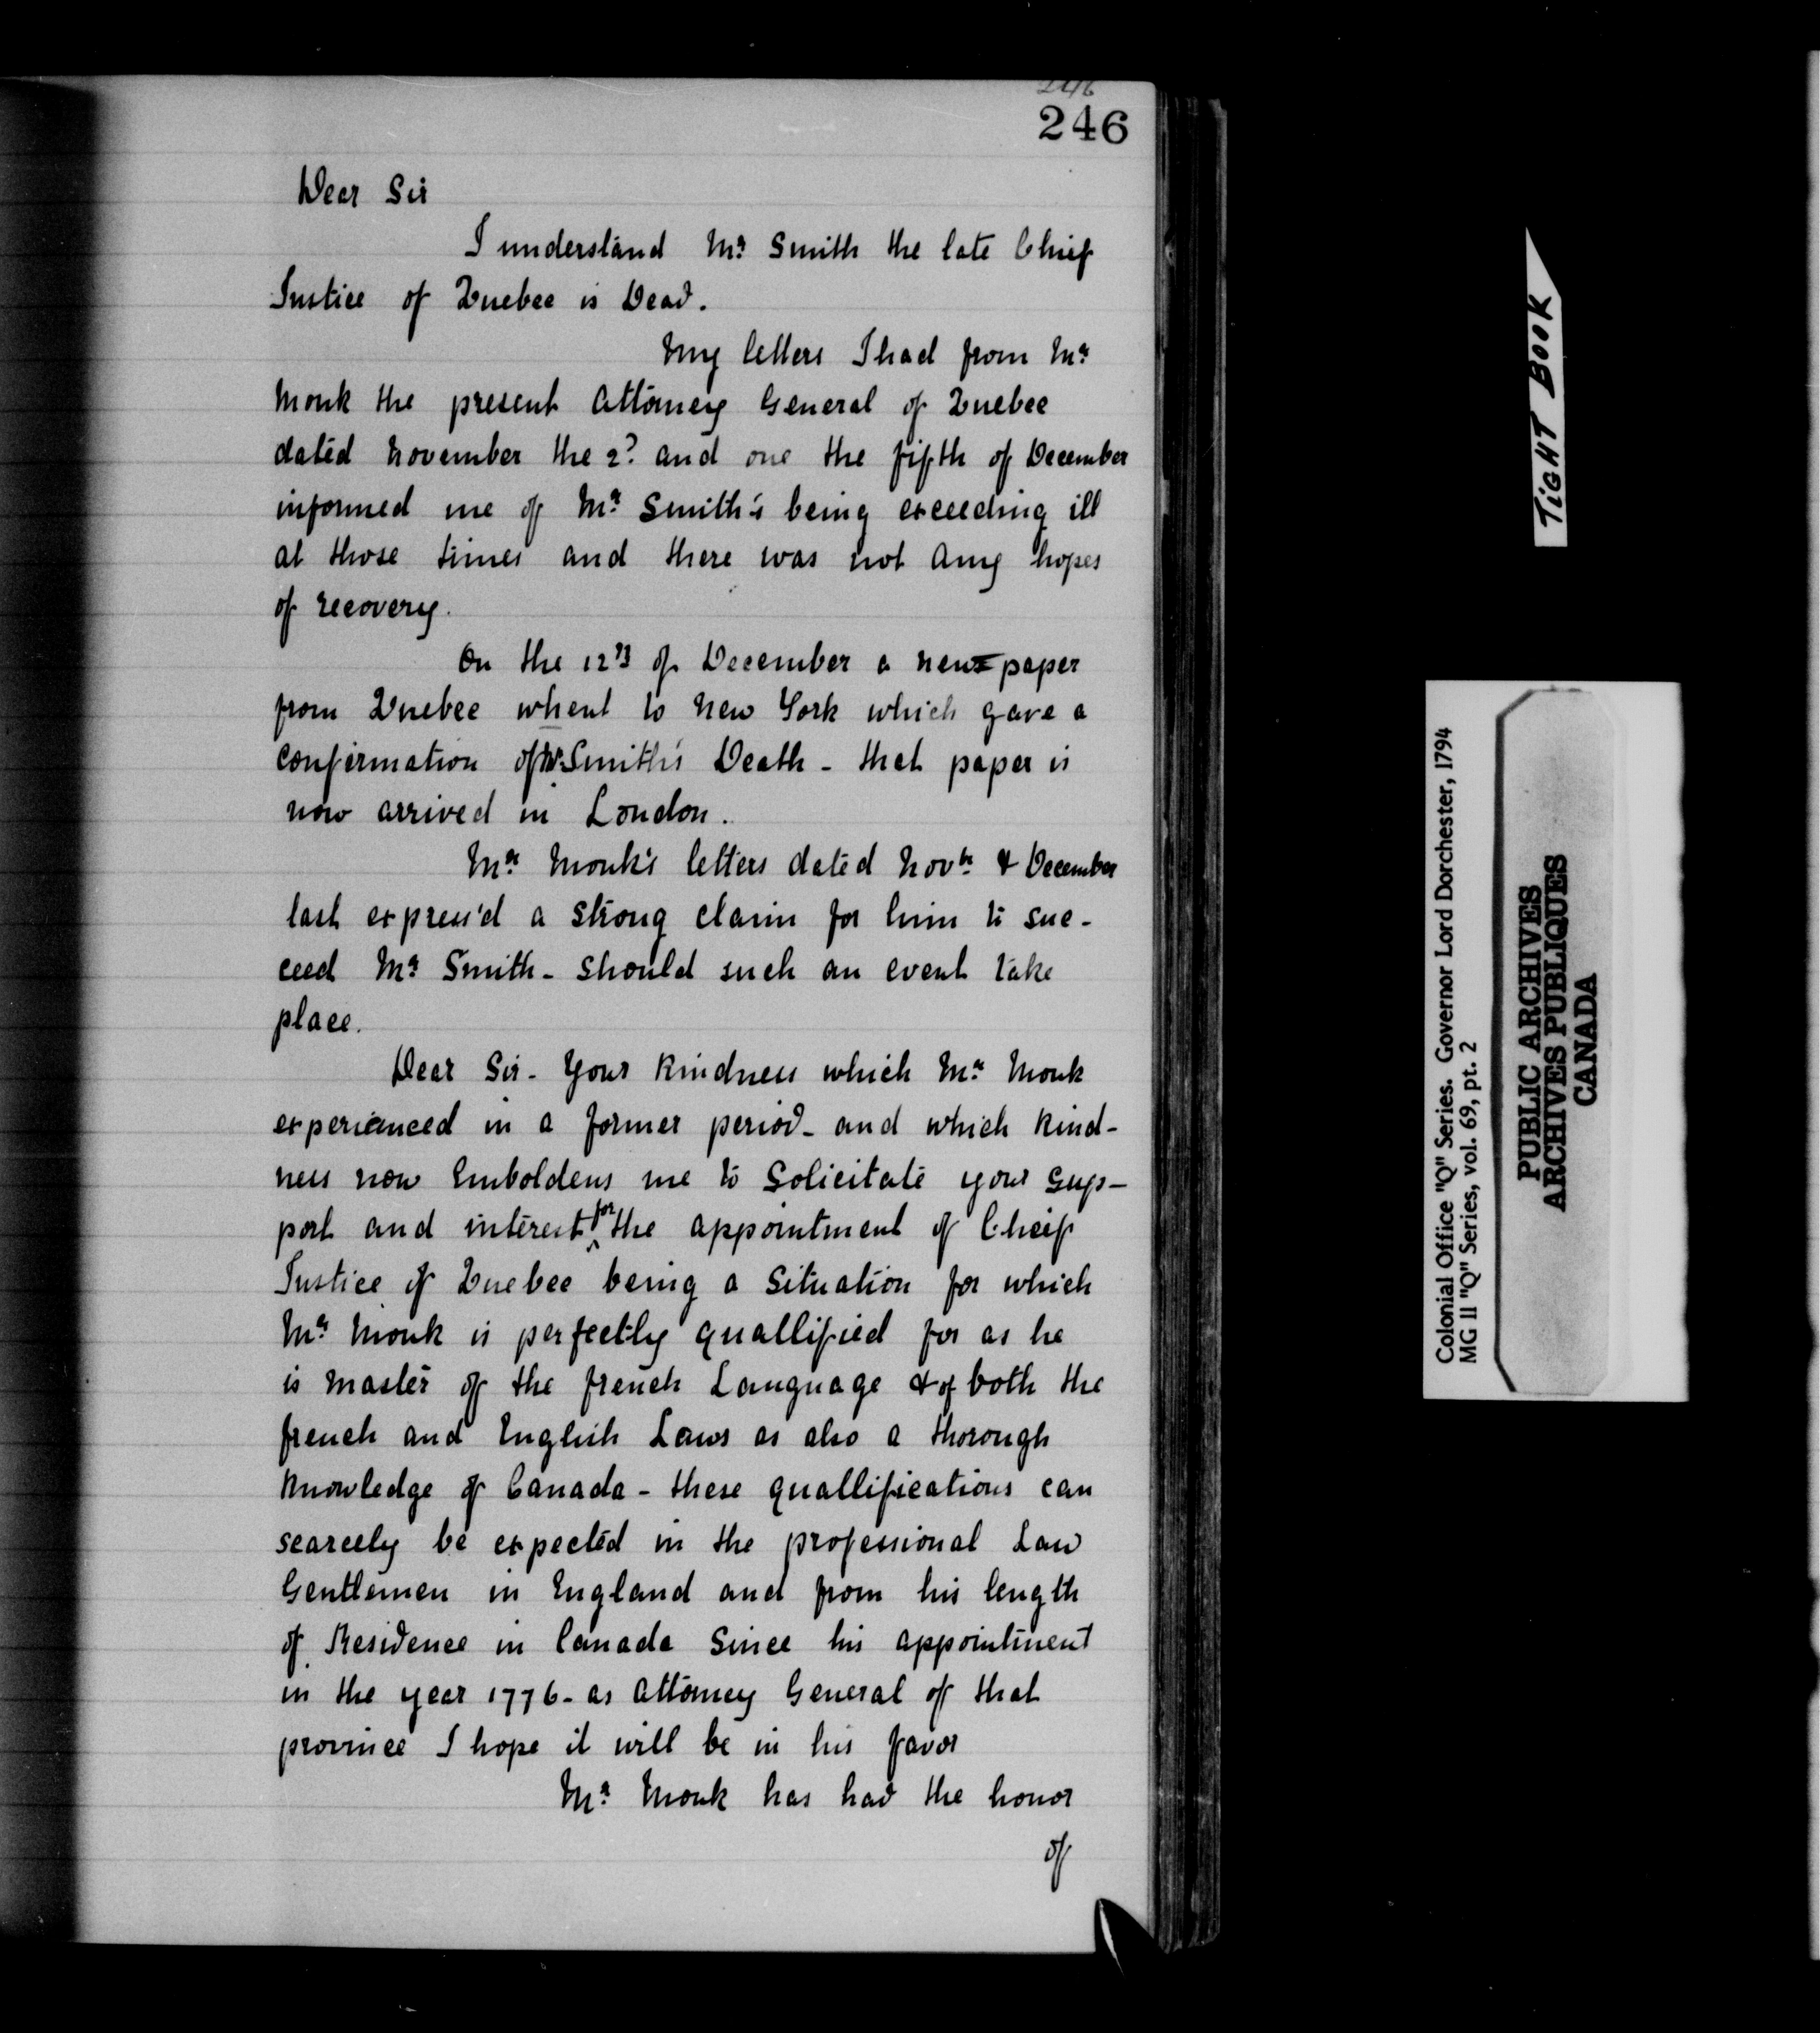 246
246
Dear Sir
I understand Mr. Smith the late Chief
Justice of Quebec is Dead.
My letters I had from Mr.
Monk the present Attorney General of Quebec
dated November the 2d and one the fifth of December
informed me of Mr. Smith's being exceeding ill
at those times and there was not Any hopes
of recovery.
On the 12th of December a news=paper
from Quebec whent to New York which gave a
confirmation of Mr. Smith's Death - that paper is
now arrived in London.
Mr. Monk's letters dated Novbr. & December
last express'd a strong claim for him to suc-
ceed Mr. Smith - should such an event take
place.
Dear Sir - Your Kindness which Mr. Monk
experienced in a former period - and which Kind-
ness now Emboldens me to Solicitate your Sup-
port and interest for the appointment of Cheif
Justice of Quebec being a Situation for which
Mr. Monk is perfectly quallified for as he
is Master of the french Language & of both the
french and English Laws as also a thorough
Knowledge of Canada - these quallifications can
scarcely be expected in the professional Law
Gentlemen in England and from his length
of Residence in Canada Since his appointment
in the year 1776 - as Attorney General of that
province I hope it will be in his favor
Mr. Monk has had the honor
of
TIGHT BOOK
Colonial Office "Q" Series. Governor Lord Dorchester, 1794
MG 11 "Q" Series, vol. 69, pt. 2
PUBLIC ARCHIVES
ARCHIVES PUBLIQUES
CANADA